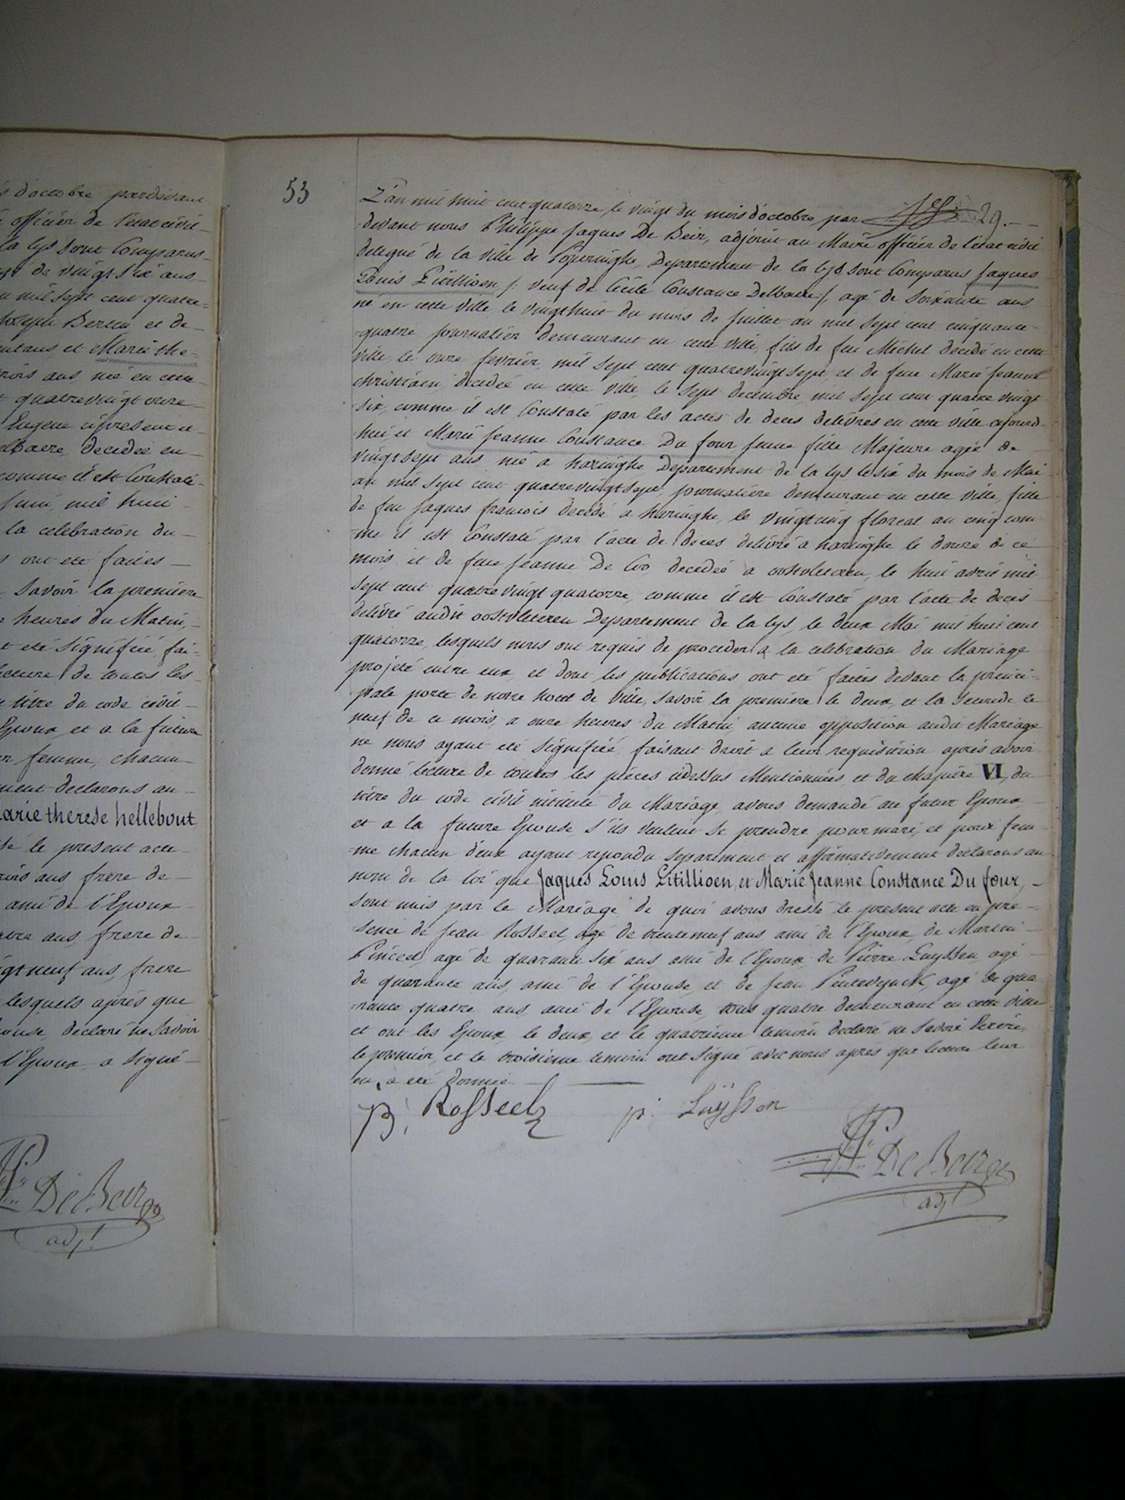 s d'octobre pardevant
officier de l'etat civil
la lys sont Comparus
de vingt six ans
mil sept cent quatre-
Joseph Berten et de-
et Marie the-
trois ans née en cette-
quatre vingt onze-
Eugene ci present et-
decedée en-
comme il est Constaté-
juin mil huit
la celebration du-
s ont été faites-
Savoir la premiere
heures du Matin,-
t été signifiée fai-
lecture de toutes les-
titre du code civil-
Epoux et a la future
femme, chacun-
ment declarons au-
Marie therese hellebout
le present acte-
trois ans frere de-
ami de l'Epoux-
ans, frere de-
vingt neuf ans, frere
lesquels après que
Epouse declaré ne Savoir
l'Epoux a Signé-
De Beir
adjt
53
29.
L'an mil huit cent quatorze, le vingt du mois d'octobre par
-devant nous Philippe Jaques De Beir, adjoint au Maire officier de l'etat civil
delegué de la ville de Poperinghe, Departement de la lys sont Comparus Jaques
Louis Litillioen / veuf de Cécile Constance Delbaere / agé de Soixante ans
né en cette ville le vingt huit du mois de Juillet an mil sept cent cinquante-
-quatre journalier demeurant en cette ville, fils de feu Michel decédé en cette
ville le onze fevrier mil sept cent quatrevingt sept et de feue Marie Jeanne
Christiaen decedée en cette ville, le sept decembre mil sept cent quatre vingt
six, comme il est Constaté par les actes de deces delivrés en cette ville aujourd-
hui, et Marie Jeanne Constance Du four jeune fille Majeure agée de-
vingt sept ans, née a haringhe Departement de la lys le six du mois de Mai
an mil sept cent quatrevingt sept, journaliere demeurant en cette ville, fille
de feu Jaques francois decédé a haringhe, le vingt cinq floreal an cinq com-
me il est Constaté par l'acte de deces delivré a haringhe le douze de ce
mois et de feue Jeanne De Coo decedée a oostvleteren, le huit avril mil
sept cent quatre vingt quatorze, comme il est Constaté par l'acte de deces
delivré audit oostvleteren Departement de la lys le deux Mai mil huit cent
quatorze, lesquels nous ont requis de proceder a la celebration du Mariage
projeté entre eux et dont les publications ont été faites devant la princi-
pale porte de notre hotel de Ville, Savoir la premiere le deux, et la Seconde le
neuf de ce mois, a onze heures du Matin, aucune opposition audit Mariage
ne nous ayant été Signifiée, faisant droit a leur requisition après avoir
donné lecture de toutes les pieces cidessus Mentionnées et du chapitre VI, du
titre du code civil intitulé du Mariage, avons demandé au futur Epoux
et a la future Epouse s'ils veulent se prendre pour mari et pour fem-
me chacun d'eux ayant repondu separement et affirmativement declarons au
nom de la loi que Jaques Louis Litillioen, et Marie Jeanne Constance Du four,-
sont unis par le Mariage de quoi avons dressé le present acte en pré-
sence de Jean Rosseel agé de trente neuf ans ami de l'Epoux de Martin
Pinceel, agé de quarante six ans ami de l'Epoux, de Pierre Luyssen agé-
de quarante ans, ami de l'Epouse, et de Jean agé de qua-
rante quatre ans ami de l'Epouse, tous quatre demeurant en cette ville
et ont les Epoux le deux et le quatrieme temoin declaré ne Savoir Ecrire,
le premier, et le troisieme temoin ont signé avec nous apres que lecture leur
en a été donnée
Rosseel
p: Luysson
De Beir
adjt